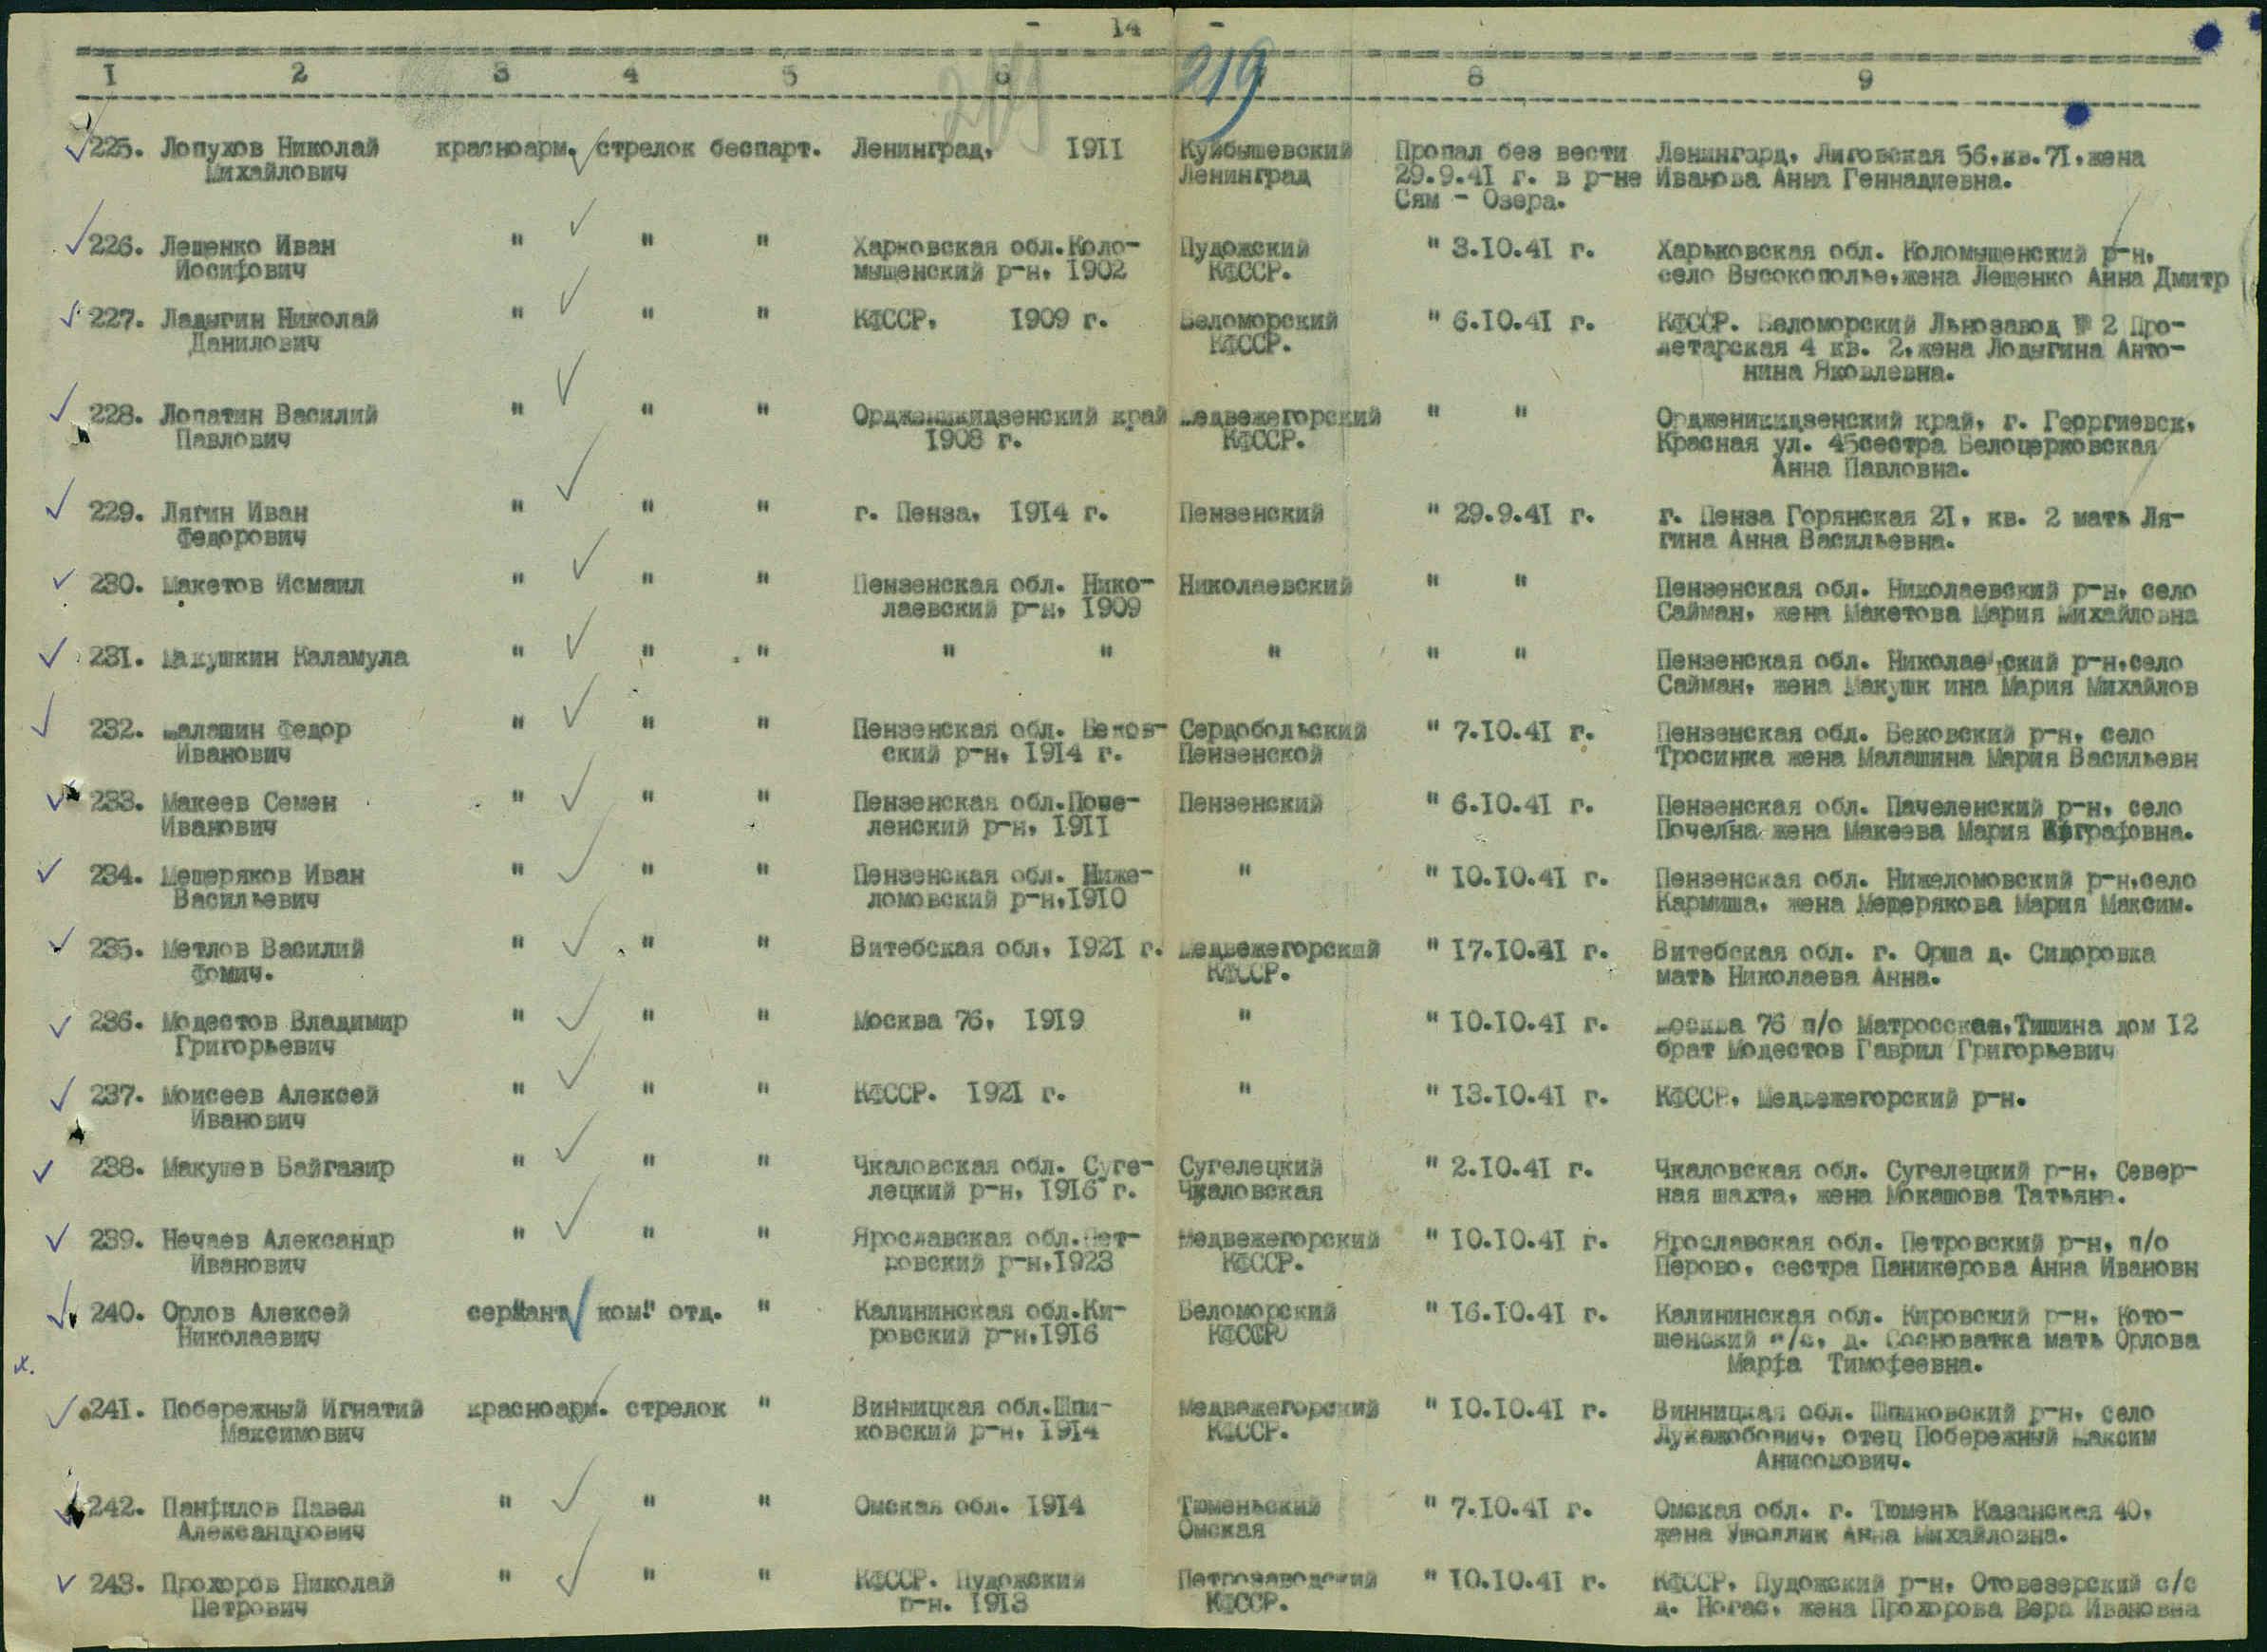 - 14 -
219
I 2 3 4 5 6 8 9
225. Лопухов Николай красноарм. стрелок беспарт. Ленинград, 1911 Куйбышевский Пропал без вести Ленингард, Лиговская 56,кв.71,жена
Михайлович Ленинград 29.9.41 г. в р-не Иванова Анна Геннадиевна.
Сям - Озера.
226. Лещенко Иван " " " Харковская обл.Коло- Пудожский " 3.10.41 г. Харьковская обл. Коломыщенский р-н,
Иосифович мыщенский р-н, 1902 КФССР. село Высокополье,жена Лещенко Анна Дмитр
227. Ладыгин Николай " " " КФССР, 1909 г. Беломорский " 6.10.41 г. КФССР. Беломорский Льнозавод № 2 Про-
Данилович КФССР. летарская 4 кв. 2,жена Лодыгина Анто-
нина Яковлевна.
228. Лопатин Василий " " " Ордженикидзенский край Медвежегорский " " Ордженикидзенский край, г. Георгиевск,
Павлович 1908 г. КФССР. Красная ул. 45сестра Белоцерковская
Анна Павловна.
229. Лягин Иван " " " г. Пенза, 1914 г. Пензенский " 29.9.41 г. г. Пенза Горянская 21, кв. 2 мать Ля-
Федорович гина Анна Васильевна.
230. Макетов Исмаил " " " Пензенская обл. Нико- Николаевский " " Пензенская обл. Николаевский р-н, село
лаевский р-н, 1909 Сайман, жена Макетова Мария Михайловна
231. Макушкин Каламула " " " " " " " " Пензенская обл. Николаевский р-н,село
Сайман, жена Макушк ина Мария Михайлов
232. Малашин Федор " " " Пензенская обл. Беков- Сердобольский " 7.10.41 г. Пензенская обл. Бековский р-н, село
Иванович ский р-н, 1914 г. Пензенской Тросинка жена Малашина Мария Васильевн
233. Макеев Семен " " " Пензенская обл.Поче- Пензенский " 6.10.41 г. Пензенская обл. Пачеленский р-н, село
Иванович ленский р-н, 1911 Почелна жена Макеева Мария
234. Мещеряков Иван " " " Пензенская обл. Ниже- " " 10.10.41 г. Пензенская обл. Нижеломовский р-н,село
Васильевич ломовский р-н,1910 Кармиша, жена Мещерякова Мария Максим.
235. Метлов Василий " " " Витебская обл, 1921 г. Медвежегорский " 17.10.41 г. Витебская обл. г. Орша д. Сидоровка
Фомич. КФССР. мать Николаева Анна.
236. Модестов Владимир " " " Москва 76, 1919 " " 10.10.41 г. Москва 76 п/о Матросская,Тишина дом 12
Григорьевич брат Модестов Гаврил Григорьевич
237. Моисеев Алексей " " " КФССР. 1921 г. " " 13.10.41 г. КФССР, Медвежегорский р-н.
Иванович
238. Макушев Байгазир " " " Чкаловская обл. Суге- Сугелецкий " 2.10.41 г. Чкаловская обл. Сугелецкий р-н, Север-
лецкий р-н, 1916 г. Чкаловская ная шахта, жена Мокашова Татьяна.
239. Нечаев Александр " " " Ярославская обл.Пет- Медвежегорский " 10.10.41 г. Ярославская обл. Петровский р-н, п/о
Иванович ровский р-н,1923 КФССР. Перово, сестра Паникерова Анна Ивановн
240. Орлов Алексей сержант ком. отд. " Калининская обл.Ки- Беломорский " 16.10.41 г. Калининская обл. Кировский р-н, Кото-
Николаевич ровский р-н,1916 КФССР шенский с/с, д. Сосноватка мать Орлова
Марфа Тимофеевна.
241. Побережный Игнатий красноарм. стрелок " Винницкая обл.Шпи- Медвежегорский " 10.10.41 г. Винницкая обл. Шпиковский р-н, село
Максимович ковский р-н, 1914 КФССР. Лукажобович, отец Побережный Максим
Анисомович.
242. Панфилов Павел " " " Омская обл. 1914 Тюменьский " 7.10.41 г. Омская обл. г. Тюмень Казанская 40,
Александрович Омская жена Анна Михайловна.
243. Прохоров Николай " " " КФССР. Пудожский Петрозаводский " 10.10.41 г. КФССР, Пудожский р-н, Отовезерский с/с
Петрович р-н. 1913 КФССР. д. Ногас, жена Прохорова Вера Ивановна